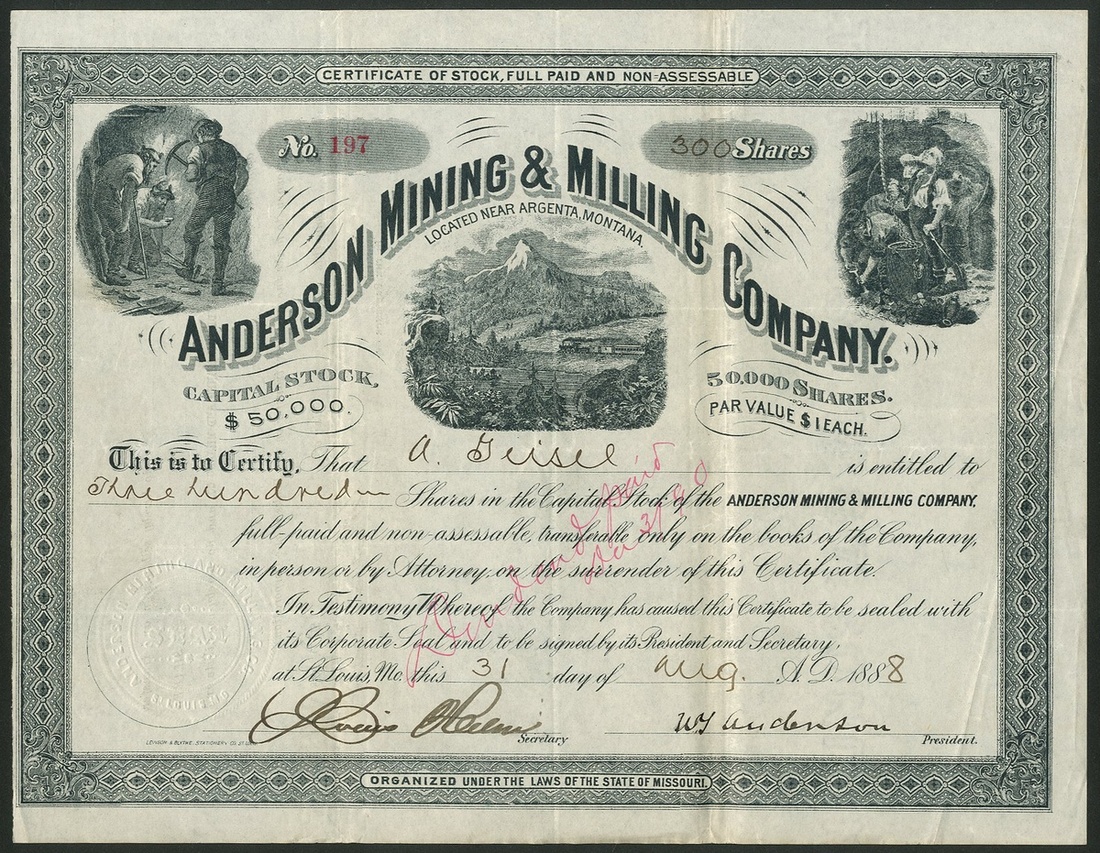 CERTIFICATE OF STOCK, FULL PAID AND NON-ASSESSABLE
No. 197
300 Shares
ANDERSON MINING & MILLING COMPANY.
LOCATED NEAR ARGENTA, MONTANA.
CAPITAL STOCK,
$50,000.
50,000 SHARES.
PAR VALUE $1 EACH.
This is to Certify, That A. Geisel is entitled to
Three hundred Shares in the Capital Stock of the ANDERSON MINING & MILLING COMPANY,
full-paid and non-assessable, transferable only on the books of the Company,
in person or by Attorney, on the surrender of this Certificate.
In Testimony Whereof, the Company has caused this Certificate to be sealed with
its Corporate Seal and to be signed by its President and Secretary,
at St. Louis, Mo. this 31 day of Aug. A.D. 1888
Dividend paid
Louis
Secretary
W J Anderson
President.
ST. LOUIS MO
ORGANIZED UNDER THE LAWS OF THE STATE OF MISSOURI.